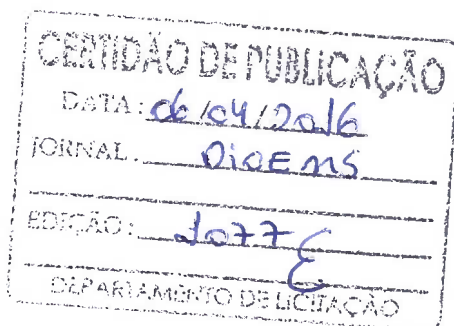 CERTIDÃO DE PUBLICAÇÃO
DATA: 06/04/2016
JORNAL: DIOEMS
EDIÇÃO: 1077
DEPARTAMENTO DE LICITAÇÃO